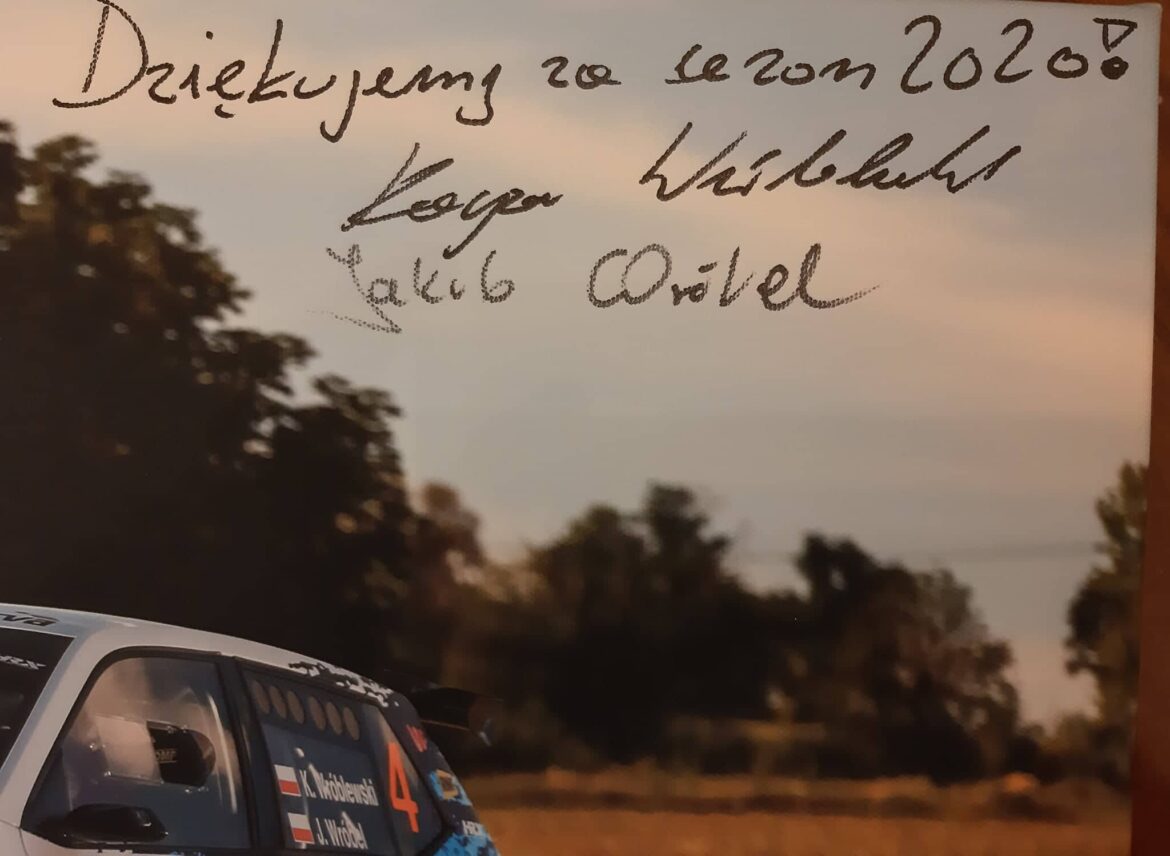 Dziękujemy za sezon 2020!
Kacper Wróblewski
Jakub Wróbel
K. Wróblewski
J. Wróbel
4